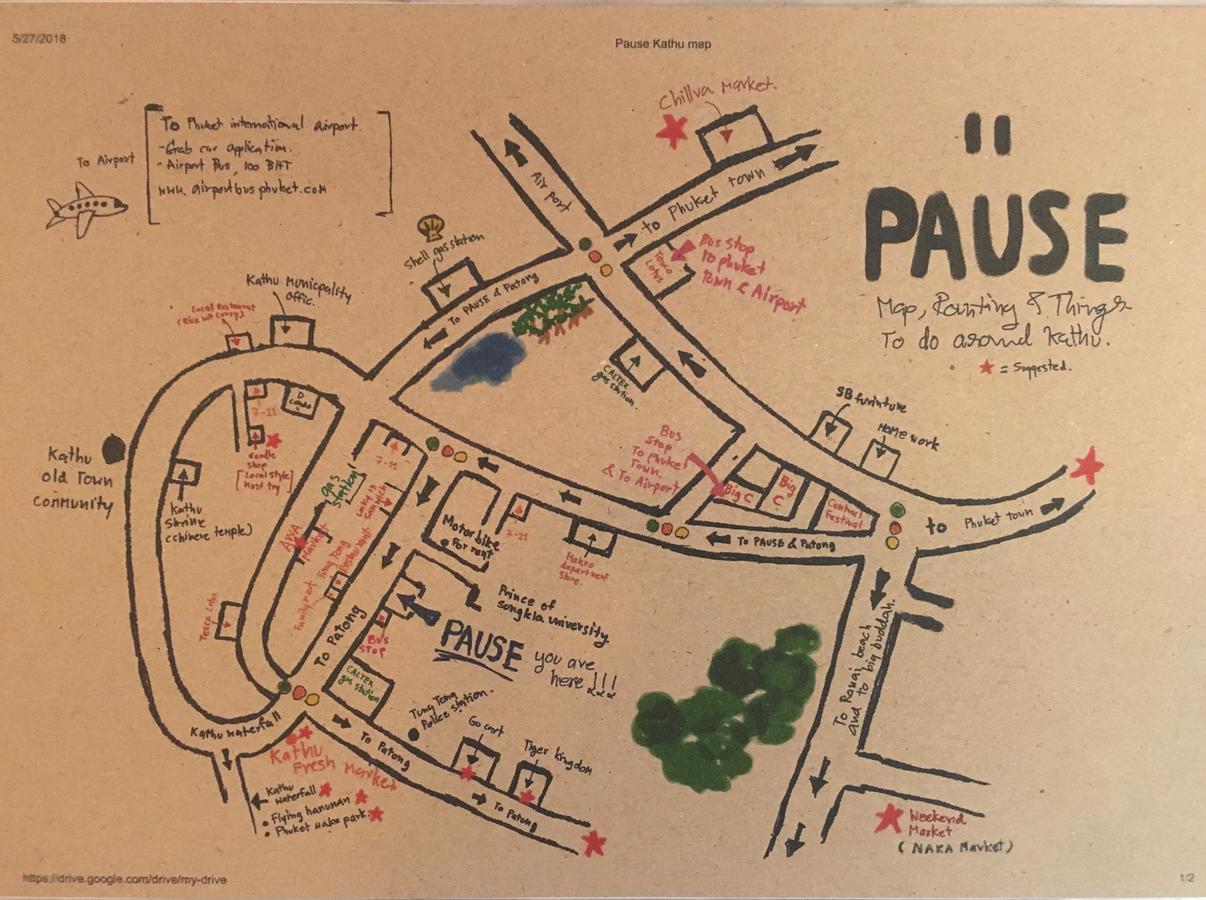 5/27/2018
Pause Kathu map
To Airport
To Phuket international airport.
-Grab car application.
- Airport Bus, 100 BHT
www. airportbusphuket.com
Chillva Market.
Airport
to Phuket town
PAUSE
Map, Painting & Things
To do around Kathu.
= Suggested.
Shell gas station
Tesco
Lotus
Bus stop
To phuket
Town & Airport
To PAUSE & Patong
Kathu Municpality
Offic.
Local Restaurant
(Rice with curry)
CALTEX
gas station.
7-11
D
condo
SB furinture
Home work
Bus
stop
To Phuket
Town.
& To Airport
Big C
Big
C
Central
Festival
to Phuket town
To PAUSE & Patong
Kathu
old Town
community
Noodle
shop
[Local style]
Must try
Kathu
Shrine
(chinere temple)
gas
station
7-11
Motorbike
For rent
7-11
Makro
department
store.
AVA
Market
Tong Tong
Restaurant
Family mart
Tesco Lotus
To Patong
BUS
STOP
Prince of
songkla university.
PAUSE you are
here !!!
CALTEX
gas station
Tung Tong
Police station.
Go cart
Tiger kingdom
To Rawai beach
and to big buddah.
Kathu waterfall
Kathu
Fresh Market
To Patong
To Patong
Kathu
waterfall
• Flying hanuman
• Phuket wake park.
Weekend
Market
( NAKA Market)
https://drive.google.com/drive/my-drive
1/2